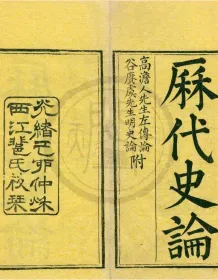 厤代史論
高澹人先生左傳論
谷賡虞先生明史論
附
光緒己卯仲秌
西江裴氏校栞